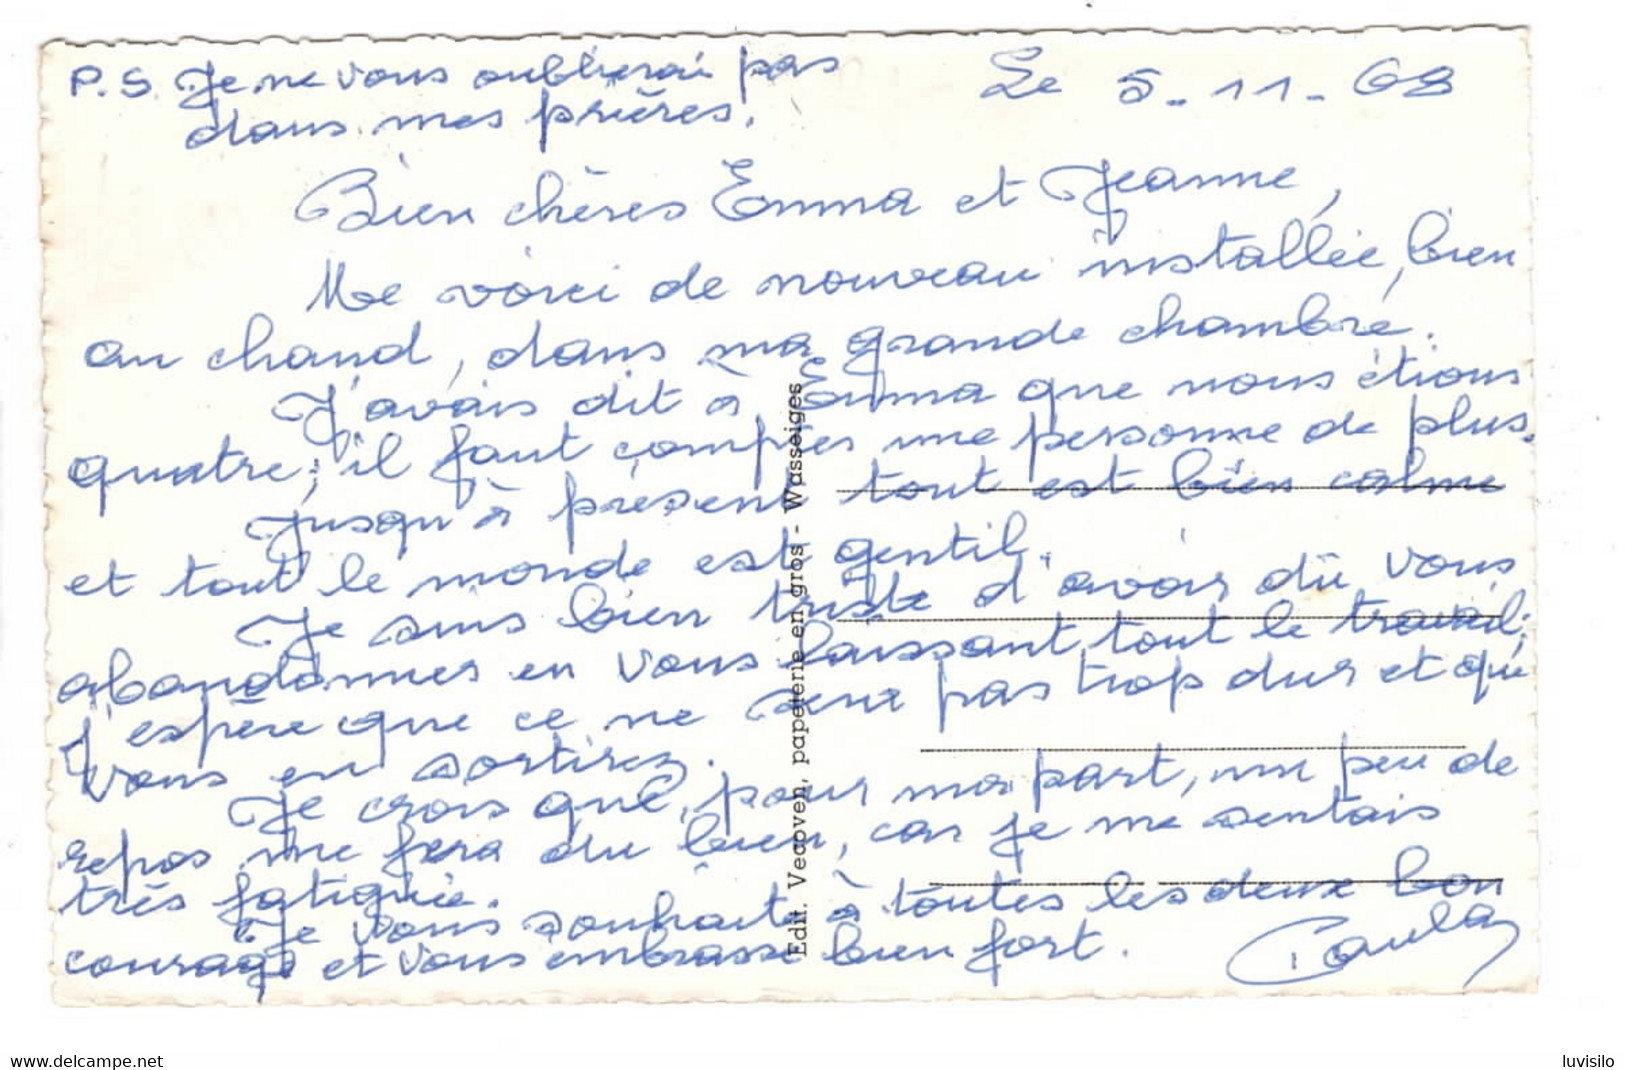 P.S. Je ne vous oublierai pas
dans mes prières.
Le 5-11-68
Bien chères Emma et Jeanne,
Me voici de nouveau installée, bien
au chaud, dans ma grande chambre.
J'avais dit à Emma que nous étions
quatre, il faut compter une personne de plus.
Jusqu'à présent tout est bien calme
et tout le monde est gentil.
Je suis bien triste d'avoir dû vous
abandonner en vous laissant tout le travail;
j'espère que ce ne sera pas trop dur et que
vous en sortirez.
Je crois que, pour ma part, un peu de
repos me fera du bien, car je me sentais
très fatiguée.
Je vous souhaite à toutes les deux bon
courage et vous embrasse bien fort.
Paula
Edit. Vecoven, papeterie en gros - Wasseiges
www.delcampe.net
luvisilo